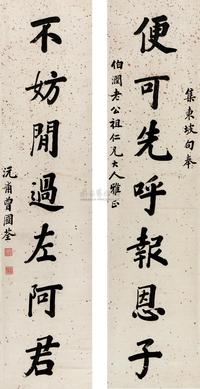 集東坡句奉
便可先呼報恩子
伯澗老公祖仁兄大人雅正
不妨閒過左阿君
沅甫曾國荃